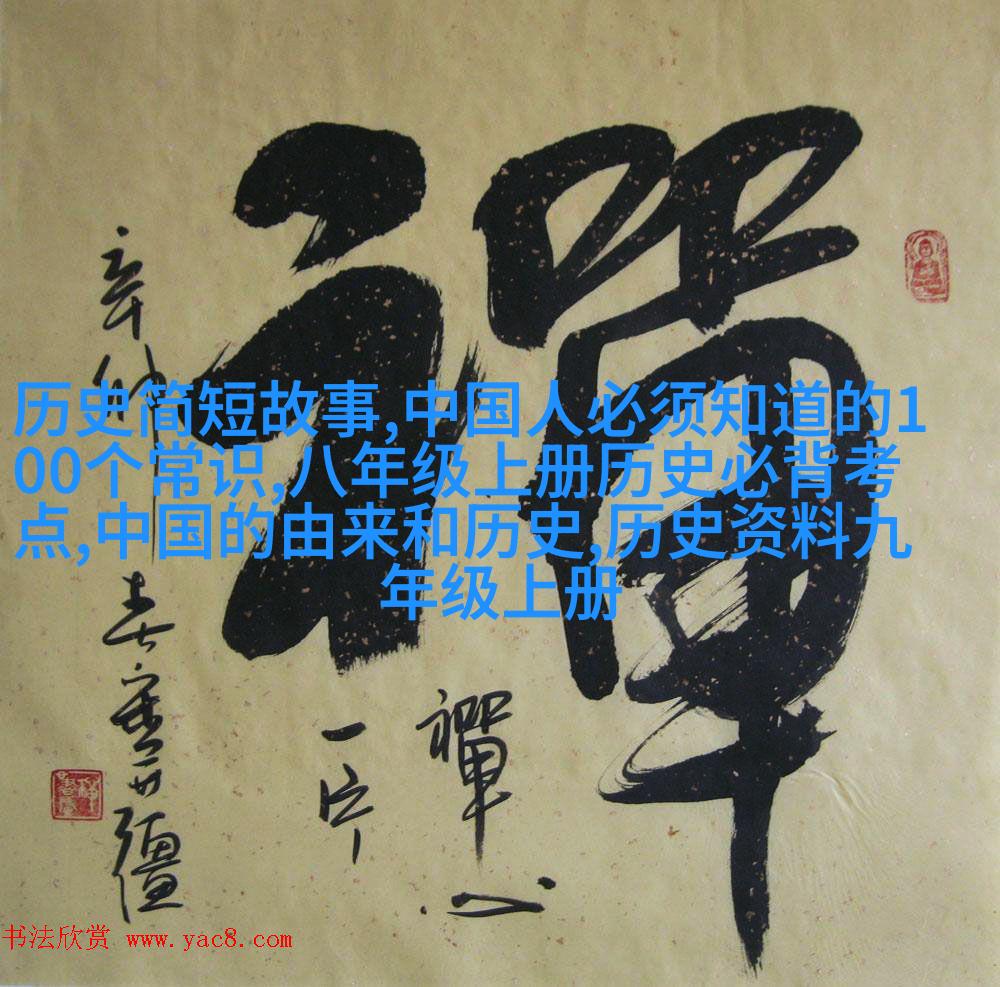 禪
历史简短故事,中国人必须知道的1
00个常识,八年级上册历史必背考
点,中国的由来和历史,历史资料九
年级上册
禪心
一片
辛卯春
书法欣赏 www.yac8.com